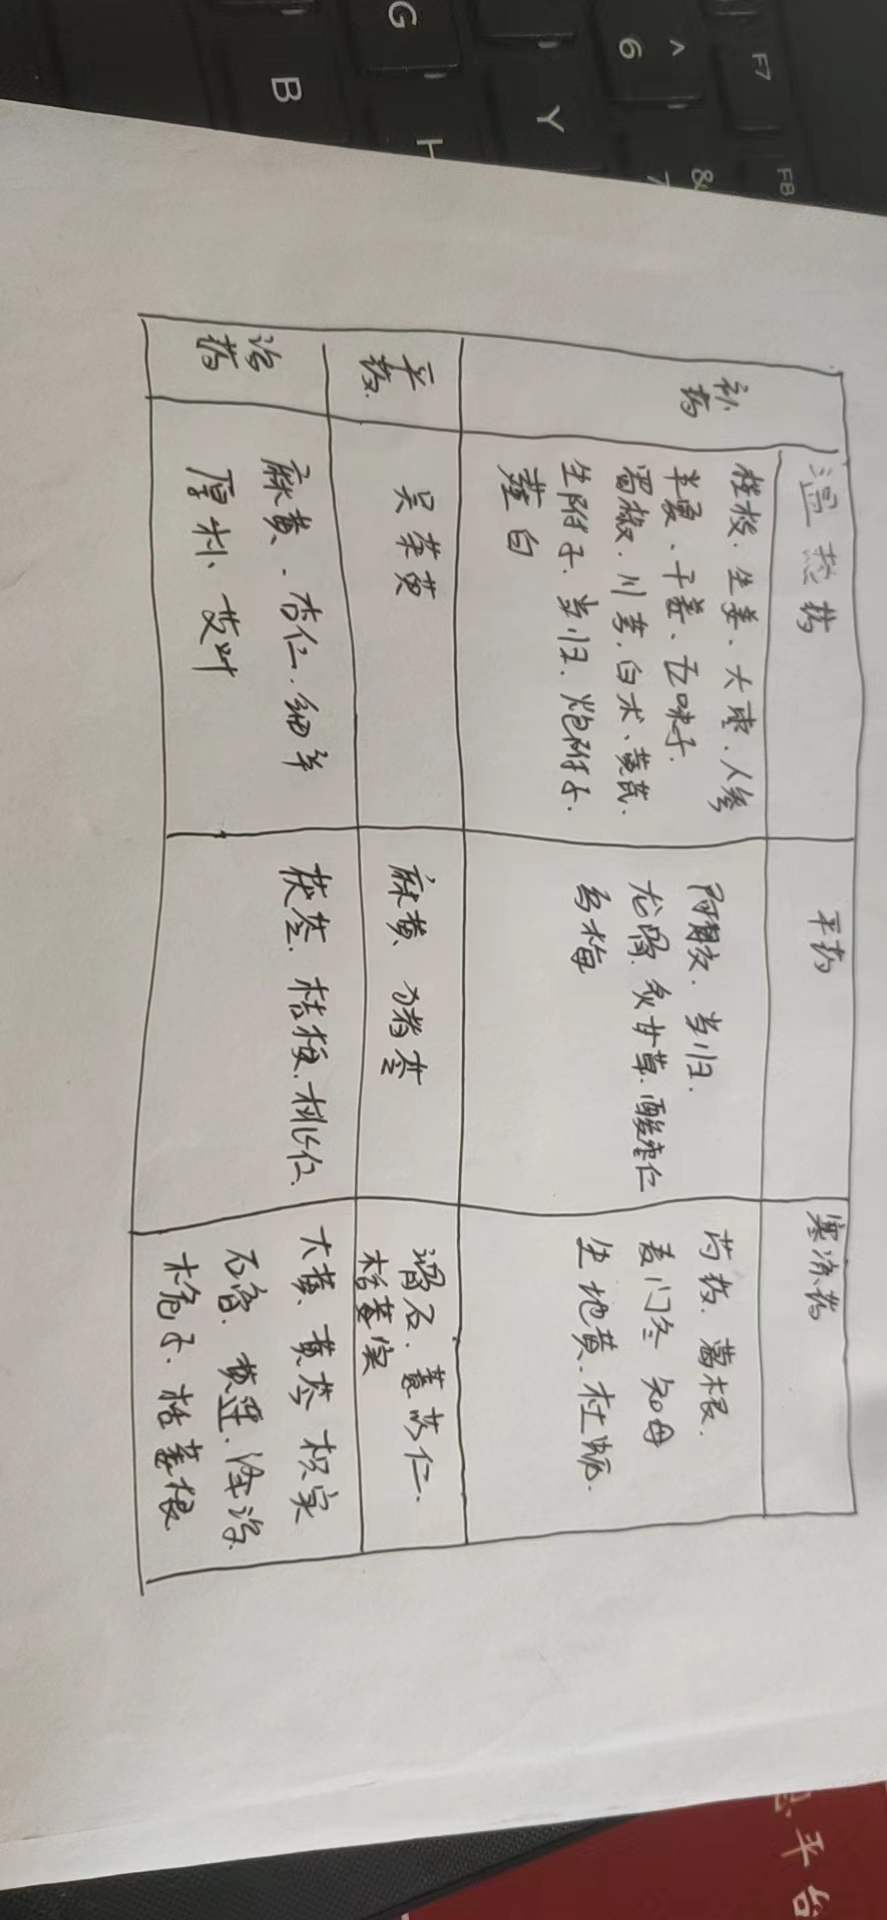 温热药 平药 寒凉药
补药
桂枝、生姜、大枣、人参
半夏、干姜、五味子、
蜀椒、川芎、白术、黄芪、
生附子、当归、炮附子、
薤白
阿胶、当归、
龙骨、炙甘草、酸枣仁
乌梅
芍药、葛根、
麦门冬 知母
生地黄、牡蛎、
平药
吴茱萸
麻黄 猪苓
滑石、薏苡仁、
栝蒌实
泻药
麻黄、杏仁、细辛
厚朴、艾叶
茯苓、桔梗、桃仁
大黄、黄芩 枳实
石膏、黄连、泽泻、
栀子、栝蒌根
F7
F8
^
6
&
7
Y
G
H
B
平台